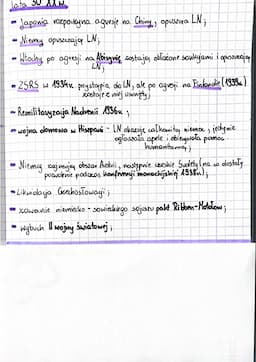 lata 30 XX w.
- Japonia rozpoczyna agresję na Chiny, opuszcza LN;
- Niemcy opuszczają LN;
- Włochy po agresji na Abisynię zostają obłożone sankcjami i opuszczają
LN;
- ZSRS w 1934r. przystąpiła do LN, ale po agresji na Finlandię (1939r.)
zostaje z niej usunięty;
- Remilitaryzacja Nadrenii 1936r.;
- wojna domowa w Hiszpanii - LN okazuje całkowitą niemoc, jedynie
ogłaszała apele i obiecywała pomoc
humanitarną;
- Niemcy zajmują obszar Austrii, następnie czeskie Sudety (na co dostały
pozwolenie podczas konferencji monachijskiej 1938r.);
- Likwidacja Czechosłowacji;
- zawarcie niemiecko-sowieckiego sojuszu pakt Ribben-Mołotow;
- wybuch II wojny światowej;